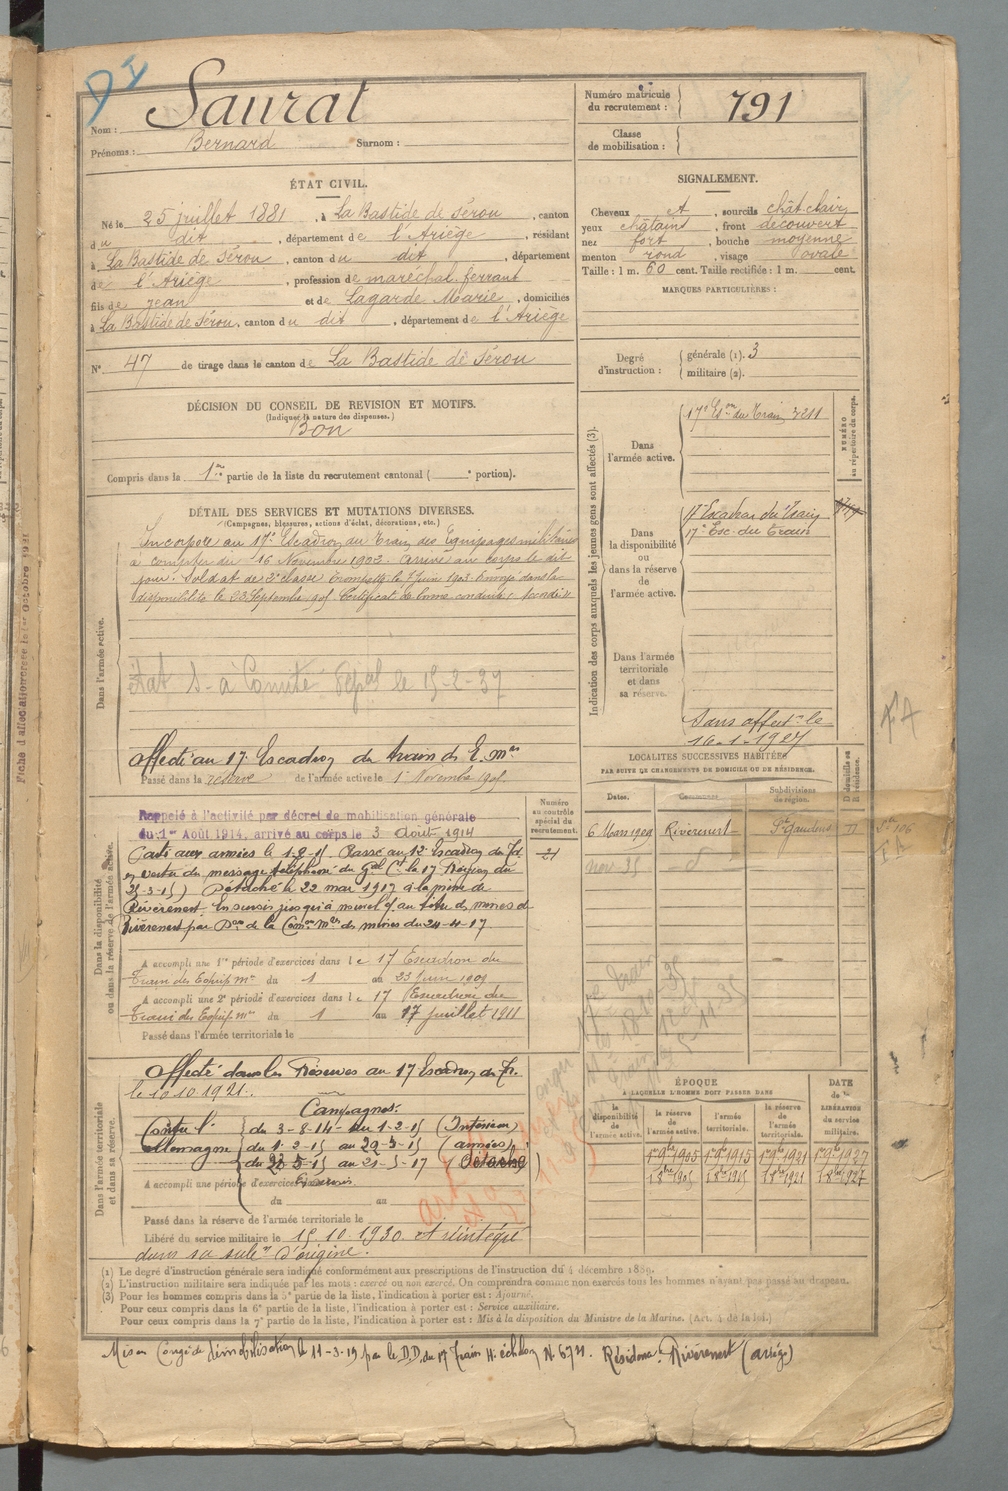 Saurat
Nom :
Prénoms : Bernard Surnom :
Numéro matricule du recrutement : 791
Classe de mobilisation :
ÉTAT CIVIL.
Né le 25 juillet 1881, à La Bastide de Sérou, canton
du dit, département de l'Ariège, résidant
à La Bastide de Sérou, canton du dit, département
de l'Ariège, profession de maréchal ferrant
fils de Jean et de Lagarde Marie, domiciliés
à La Bastide de Sérou, canton du dit, département de l'Ariège
N° 47 de tirage dans le canton de La Bastide de Sérou
SIGNALEMENT.
Cheveux et, sourcils chât clair
yeux châtains, front découvert
nez fort, bouche moyenne
menton rond, visage ovale
Taille : 1 m. 60 cent. Taille rectifiée : 1 m. cent.
MARQUES PARTICULIÈRES :
Degré d'instruction : générale (1). 3
militaire (2).
DÉCISION DU CONSEIL DE REVISION ET MOTIFS.
(Indiquer la nature des dispenses.)
Bon
Compris dans la 1re partie de la liste du recrutement cantonal ( e portion).
DÉTAIL DES SERVICES ET MUTATIONS DIVERSES.
(Campagnes, blessures, actions d'éclat, décorations, etc.)
Dans l'armée active.
Incorporé au 17e Escadron du Train des Equipages militaires
à compter du 16 Novembre 1902. Arrivé au corps le dit
jour. Soldat de 2e classe. Trompette le 7 juin 1903. Envoyé dans la
disponibilité le 23 Septembre 1905 Certificat de bonne conduite : Accordé
état S- à Comité le 15-2-37
Affecté au 17e Escadron du train des E. mres
Passé dans la réserve de l'armée active le 1er Novembre 1905
Indication des corps auxquels les jeunes gens sont affectés (3).
NUMÉRO au répertoire du corps.
Dans l'armée active. 17e Eson du Train 3211
Dans la disponibilité ou dans la réserve de l'armée active.
17 Escadron du Train
17e Esc. du Train
Dans l'armée territoriale et dans sa réserve.
Sans affecton le
16-1-1927
FA
LOCALITÉS SUCCESSIVES HABITÉES
PAR SUITE DE CHANGEMENTS DE DOMICILE OU DE RÉSIDENCE.
Dates. Communes. Subdivisions de région. D domicile ou R résidence.
6 Mars 1909 Rivèrenert St Gaudens
nov-35
Dans la disponibilité ou dans la réserve de l'armée active.
Numéro au contrôle spécial du recrutement.
21
Rappelé à l'activité par décret de mobilisation générale
du 1er Août 1914, arrivé au corps le 3 Août 1914
Parti aux armées le 1-2-15 Passé au 12e Escadron du Tr.
en vertu du message téléphoné du Gal Ct la 17e Région du
25-3-15) Détaché le 22 mai 1917 à la mine de
Rivèrenert. En sursis jusqu'à nouvel of. au titre des mines de
Rivèrenert par Don de la Comon Mre des mines du 24-4-17
A accompli une 1re période d'exercices dans le 17 Escadron du
Train des Equip. mres du 1 au 23 Juin 1909
A accompli une 2e période d'exercices dans le 17 Escadron du
Train des Equip mres du 1 au 17 juillet 1911
Passé dans l'armée territoriale le
Dans l'armée territoriale et dans sa réserve.
Affecté dans les Réserves au 17 Escadron du Tr.
le 10.10.1921.
Campagnes.
Contre l' du 3-8-14 au 1-2-15 (Intérieur)
Allemagne du 1-2-15 au 22-5-15 (armées)
du 23-5-15 au 21-5-17 (Détaché)
A accompli une période d'exercices
du au
Passé dans la réserve de l'armée territoriale le
Libéré du service militaire le 15.10.1930 et réintégré
dans sa subon d'origine.
ÉPOQUE
A LAQUELLE L'HOMME DOIT PASSER DANS
DATE de la LIBÉRATION du service militaire.
la disponibilité de l'armée active. la réserve de l'armée active. l'armée territoriale. la réserve de l'armée territoriale.
1er 9bre 1905 1er 9bre 1915 1er 9bre 1921 1er 9bre 1927
1er 8bre 1905 1er 8bre 1915 1er 8bre 1921 1er 8bre 1927
(1) Le degré d'instruction générale sera indiqué conformément aux prescriptions de l'instruction du 4 décembre 1889.
(2) L'instruction militaire sera indiquée par les mots : exercé ou non exercé. On comprendra comme non exercés tous les hommes n'ayant pas passé au drapeau.
(3) Pour les hommes compris dans la 5e partie de la liste, l'indication à porter est : Ajourné.
Pour ceux compris dans la 6e partie de la liste, l'indication à porter est : Service auxiliaire.
Pour ceux compris dans la 7e partie de la liste, l'indication à porter est : Mis à la disposition du Ministre de la Marine. (Art. 4 de la loi.)
Mis en Congé de démobilisation le 11-3-19 par le D.D. du 17 Train 11e échelon N. 674. Résidence : Rivèrenert (ariège)